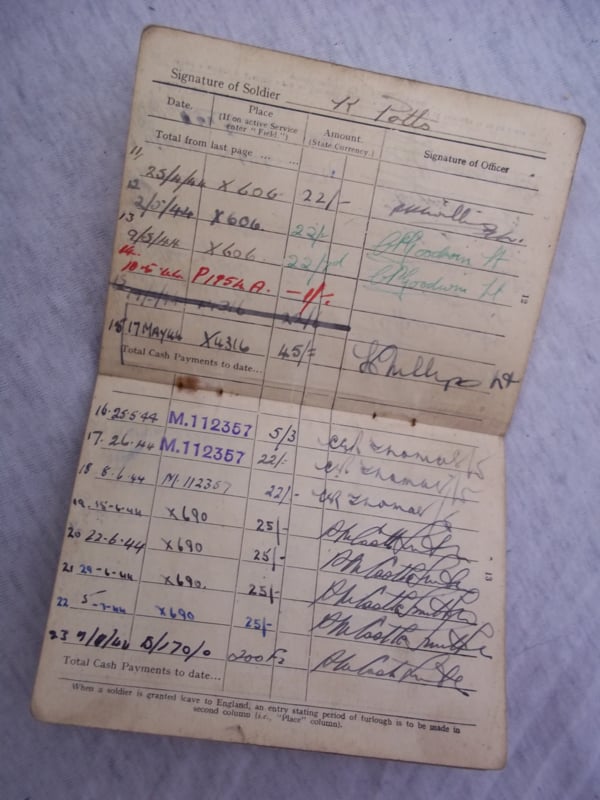 Signature of Soldier K Potts
Date. Place (If on active Service enter "Field.") Amount. (State Currency.) Signature of Officer
Total from last page ... ...
11 25/4/44 X606 22/-
12 2/5/44 X606 22/- Goodwin Lt
13 9/5/44 X606 22/- Goodwin Lt
14. 10-5-44 P1954A. -1/-
15 17 MAY 44 X4316 45/= Phillips Lt
Total Cash Payments to date...
12
16. 25 5 44 M.112357 5/3 Thomas
17. 26. 44 M.112357 22/- Thomas
18 8.6.44 M.112357 22/- Thomas
19. 15-6-44 X690 25/-
20 22-6-44 X690 25/-
21 29-6-44 X690. 25/-
22 5-7-44 X690 25/-
23 7/8/44 D/170/0 200 Fs
Total Cash Payments to date...
13
When a soldier is granted leave to England, an entry stating period of furlough is to be made in
second column (i.e., "Place" column).